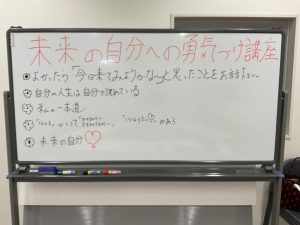 未来の自分への勇気づけ講座
よかったら「今日来てみようかな〜」と思ったことをお話し下さい。
自分の人生は自分で決めている
私の一本道
「　」がいて、「　」がある
未来の自分